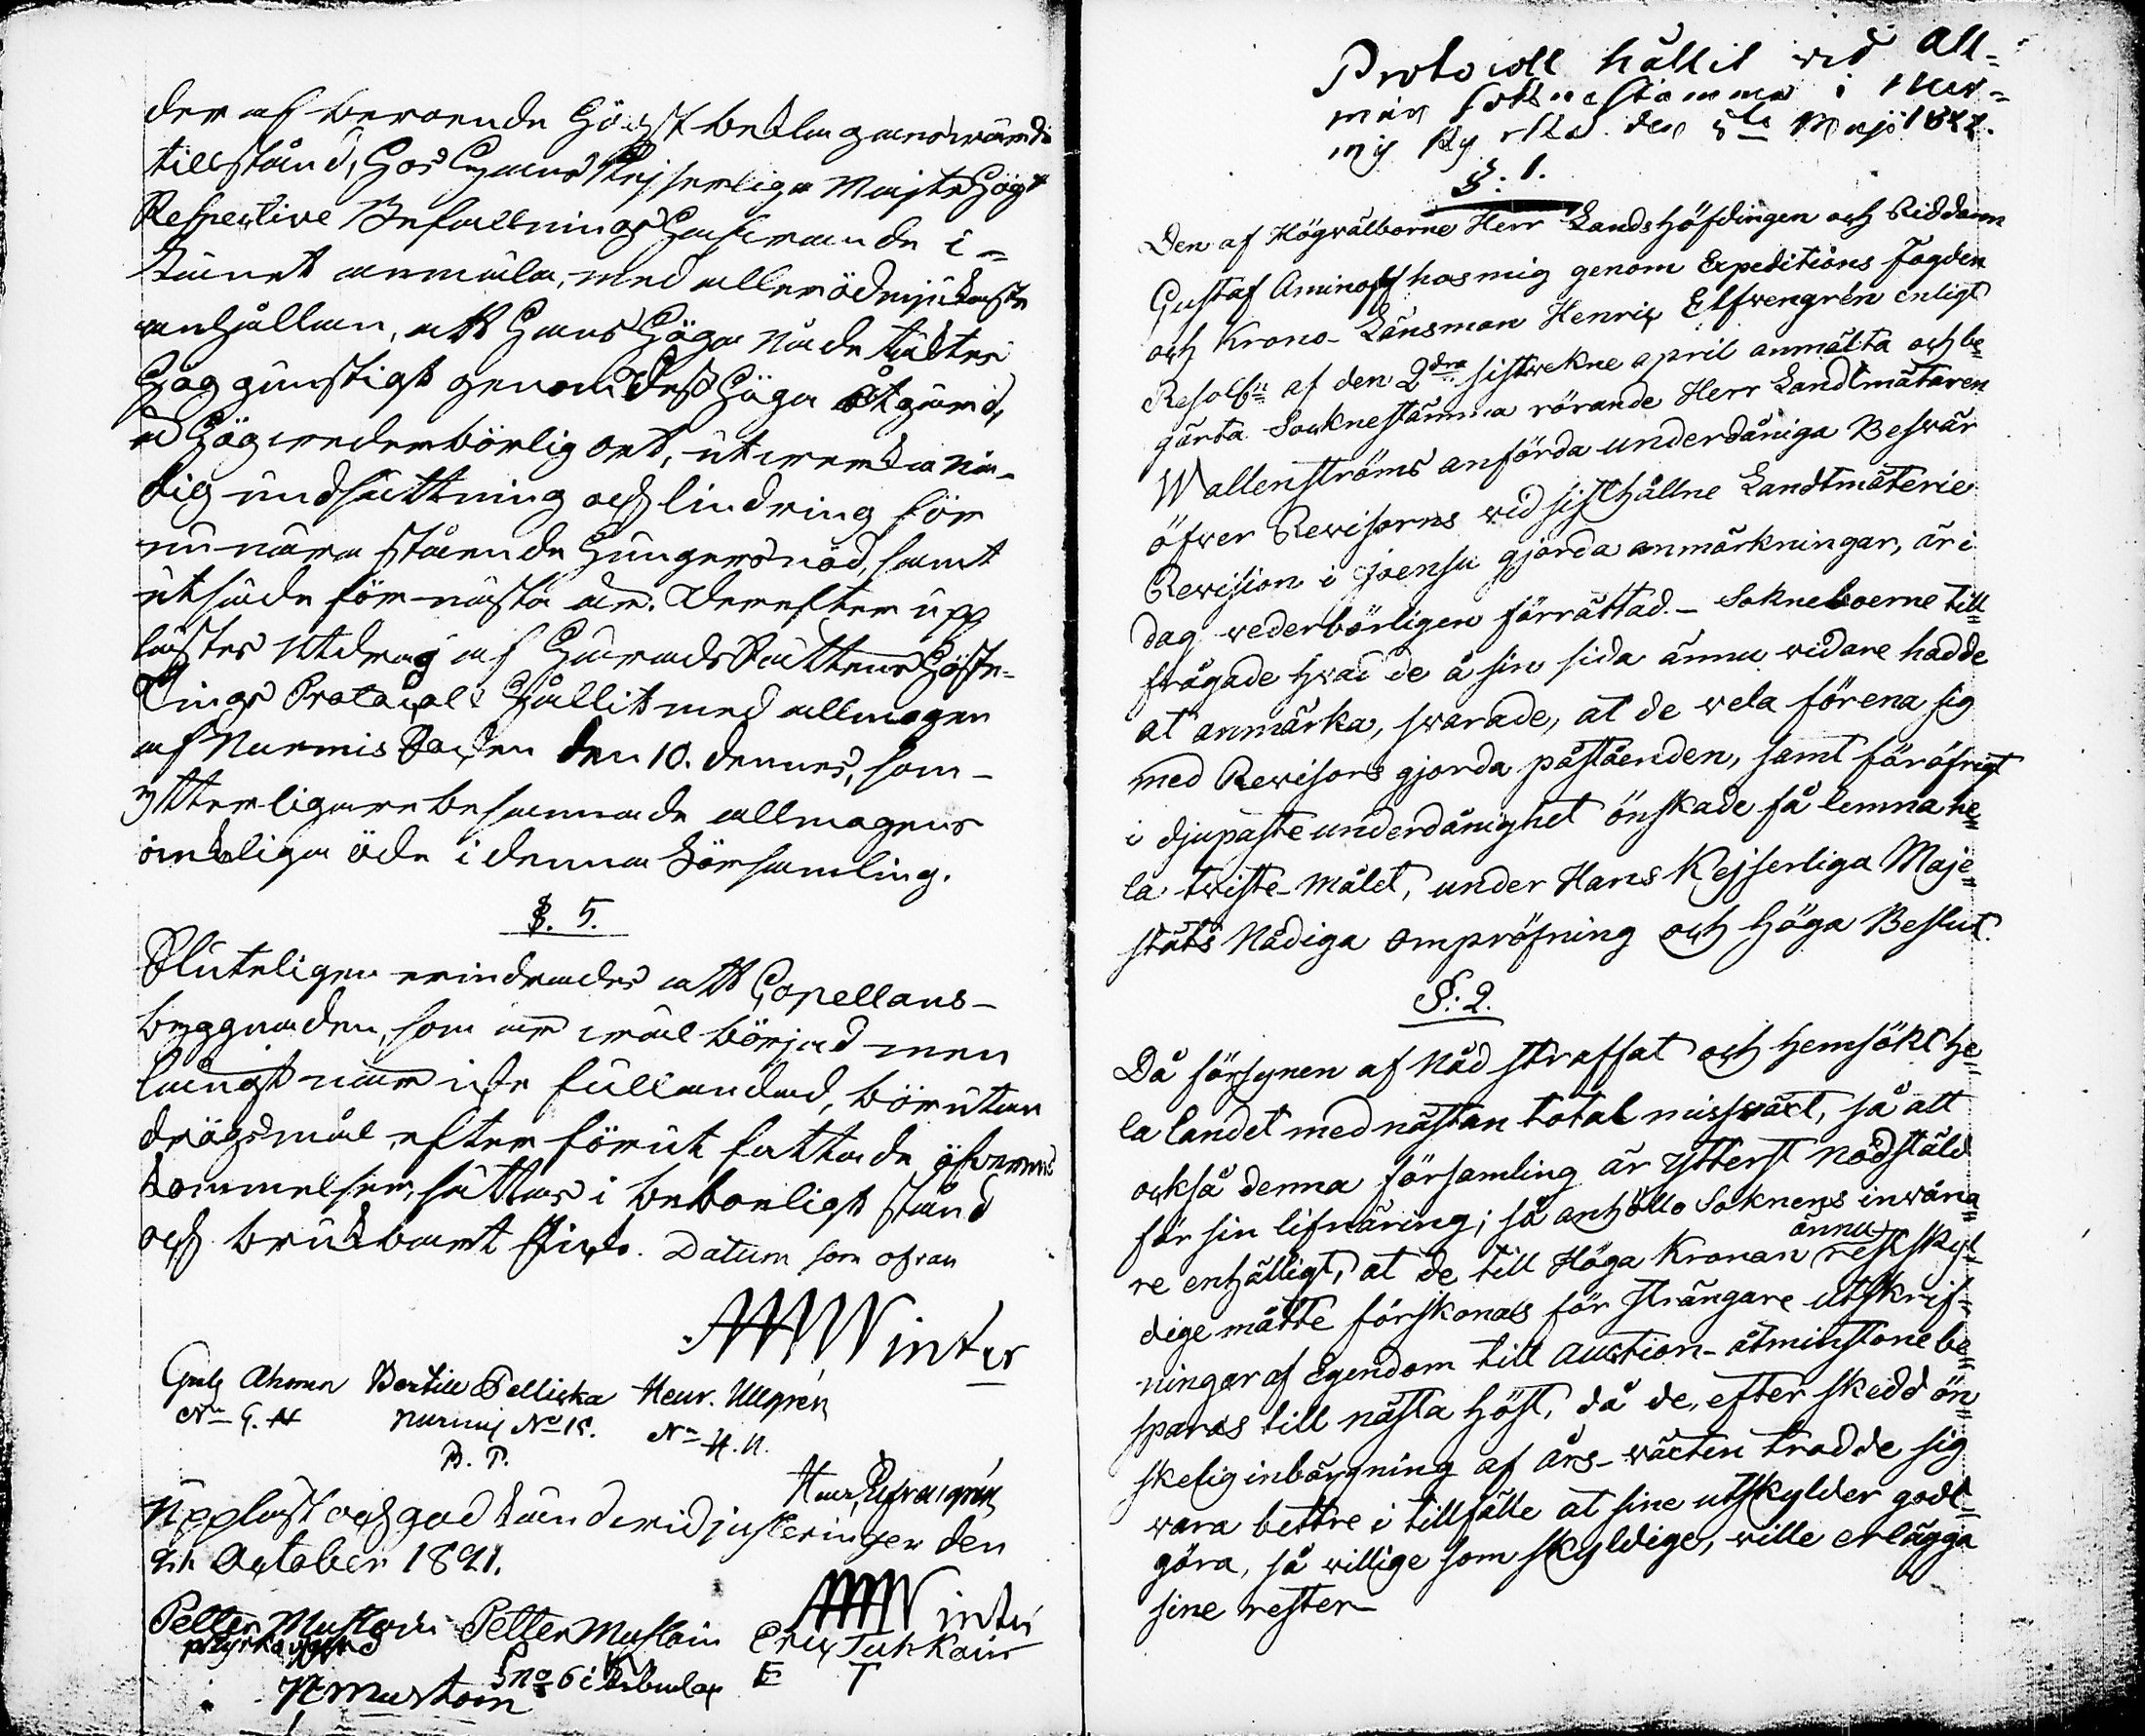 der af beroende Högst beklagansvärda
tillstånd, hos Hans Kejserliga Maj:ts Högt
Respective Befallningshafvande i
Länet anmäla, med allerödmjukaste
anhållan, att Hans Höga Nåde täcktes
Höggunstigt genom Dess Höga Åtgärd,
å Höga wederbörlig ort, utwerka nå-
dig undsättning och lindring för
nu nära stående Hungersnöd, samt
utsäde för nästa år. Derefter upp
lästes Utdrag af HäradsRättens Höste-
Tings Protocoll hållit med allmogen
af Nurmis Socken den 10. dennes, som
ytterligare besannade allmogens
ömkeliga öde i denna Församling.
§. 5.
Sluteligen erindrades att Capellans-
byggnaden, som är wäl börjad men
långt när icke fullandad, bör utan
drögsmål, efter förut fattade öfverens
kommelser, sättas i beboeligt stånd
och brukbart skick. Datum som ofvan
Winter
Bertill Pellicka Henr. Ullgrén
Nurmis No 15.
B. P. H. U.
Henr. Elfvengrén
Uppläst och godkänd wid justeringen den
21. October 1821.
Winter
Petter Mustoin Petter Mustoin Eric Tuhkain
No 6 i E T
P Mustoin
Protocoll hållit wid All-
män Sokne Stämma i Nur-
mis Kyrka den 5te Maji 1822.
§: 1.
Den af Högwälborne Herr Landshöfdingen och Riddaren
Gustaf Aminoff hos mig genom Expeditions Fogden
och Krono-Länsman Henric Elfvengrén enligt
Resol:n af den 2dra sistwekne april anmälta och be-
gärta Socknestämma rörande Herr Landtmätaren
Wallenströms anförda underdåniga Beswär
öfwer Rewisorns wid sisthållne Landtmäterie
Rewision i Joensu gjorda anmärkningar, är i
dag wederbörligen förrättad. - Sokneboerne till-
frågade hwad de å sin sida ännu widare hadde
at anmärka, swarade, at de wela förena sig
med Rewisors gjorda påståenden, samt föröfrigt
i djupaste underdånighet önskade få lemna he-
la twiste-målet, under Hans Kejserliga Maje-
stäts Nådiga ompröfning och Höga Beslut.
§: 2.
Då försynen af Nåd straffat och hemsökt he-
la landet med nästan total misswäxt, så att
också denna församling är ytterst nödstäld
för sin lifnäring; så anhöllo Soknens inwåna-
re enhälligt, at de till Höga Kronan ännu restskyl-
dige måtte förskonas för strängare utskrif-
ningar af Egendom till auction - åtminstone be-
sparas till nästa Höst, då de, efter skedd ön-
skelig inbärgning af års-wäxten trodde sig
wara bettre i tillfälle at sine utskylder godt-
göra, så willige som skyldige, wille erlägga
sine rester -